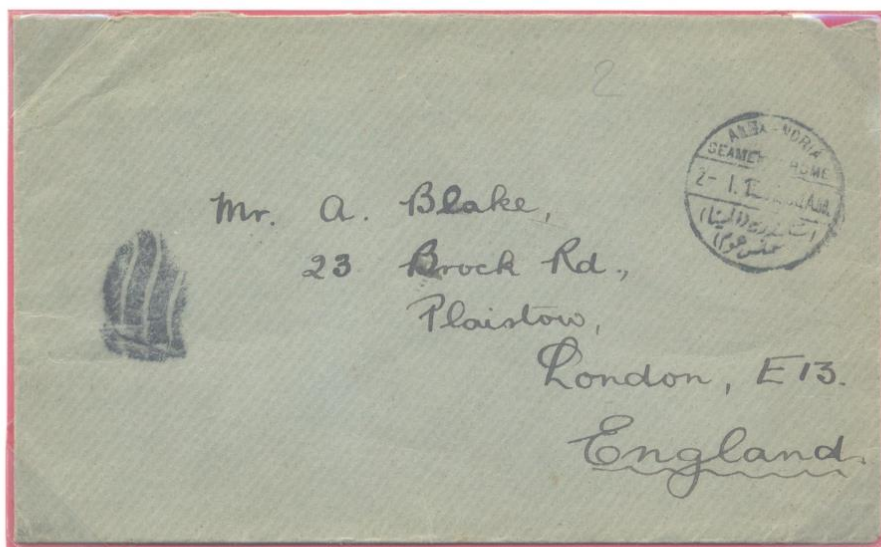 2
ALEXANDRIA
SEAMEN'S HOME
Mr. A. Blake,
23 Brock Rd.,
Plaistow,
London, E 13.
England.